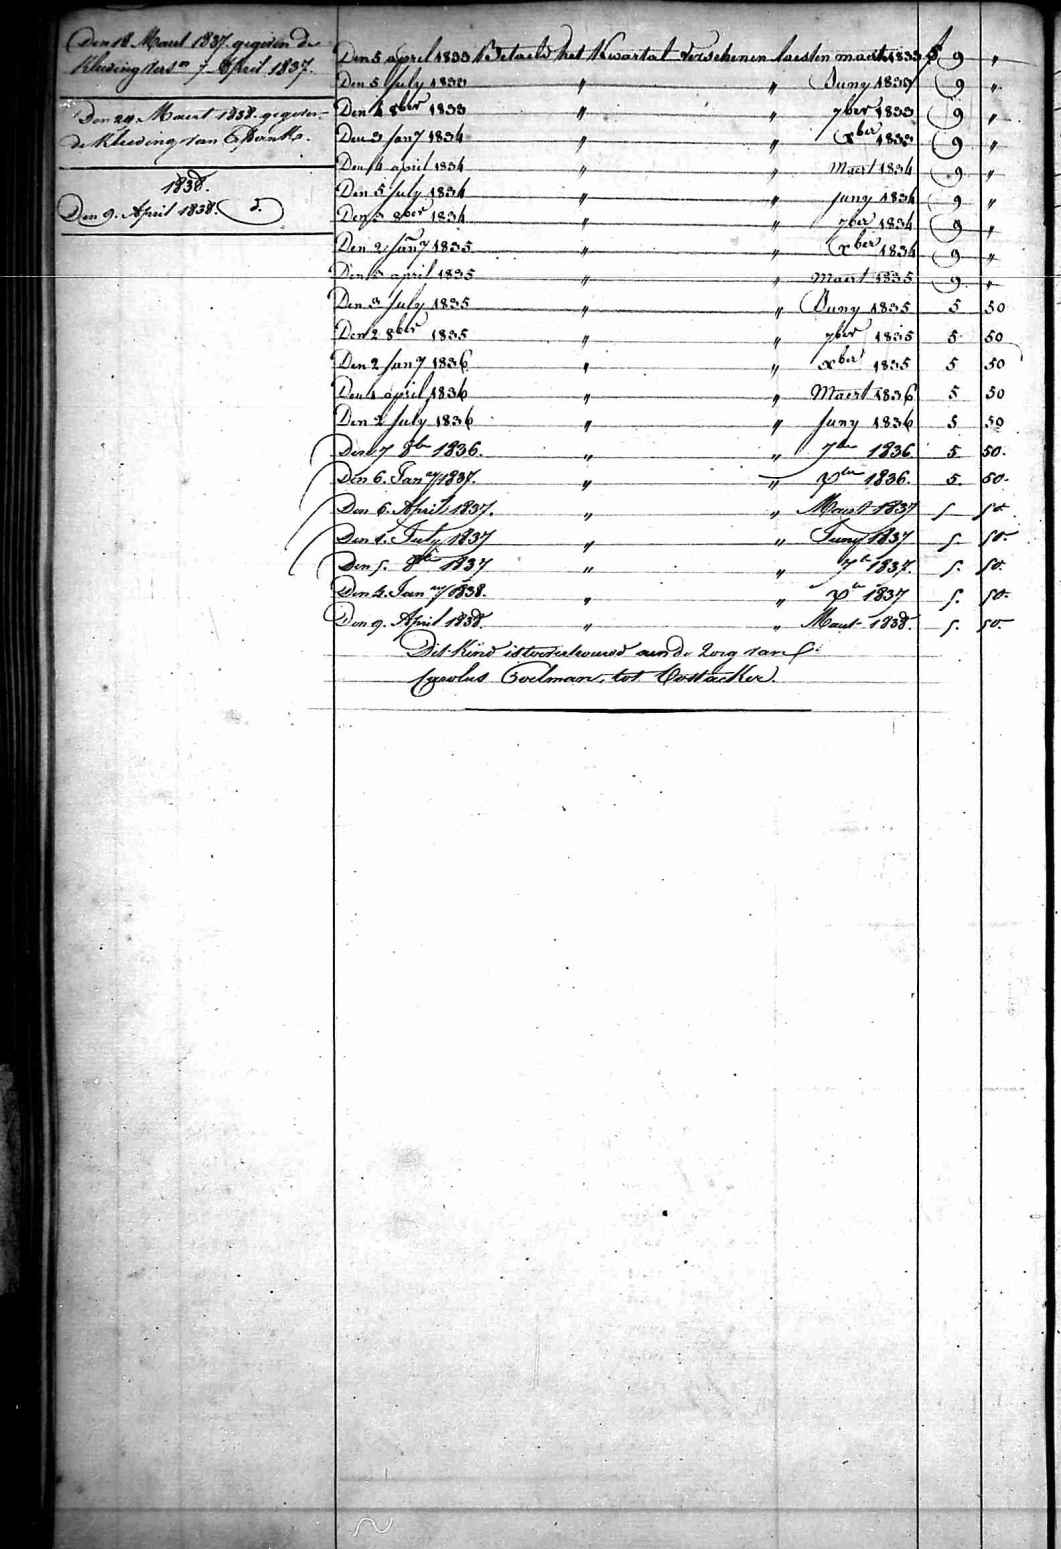 Den 18 Maert 1837. gegeven de
Kleeding 7 April 1837.
Den 24 Maert 1838. gegeven
de Kleeding van
1838.
Den 9. April 1838. 5.
Den 5 april 1833 Betaeld het Kwartal verschenen laesten maert 1833 f 9 "
Den 5 July 1833 " " Juny 1833 9 "
Den 4 8ber 1833 " " 7ber 1833 9 "
Den 3 Jany 1834 " " xber 1833 9 "
Den 4 april 1834 " " Maert 1834 9 "
Den 5 July 1834 " " Juny 1834 9 "
Den 3 8ber 1834 " " 7ber 1834 9 "
Den 2 Jany 1835 " " xber 1834 9 "
Den 3 april 1835 " " Maert 1835 9 "
Den 3 July 1835 " " Juny 1835 5 50
Den 2 8ber 1835 " " 7ber 1835 5 50
Den 2 Jany 1836 " " xber 1835 5 50
Den 1 april 1836 " " Maert 1836 5 50
Den 2 July 1836 " " Juny 1836 5 50
Den 7 8br 1836. " " 7br 1836 5 50.
Den 6. Jany 1837. " " xber 1836. 5. 50.
Den 6. April 1837. " " Maert 1837 5 50
Den 1. July 1837 " " Juny 1837 5. 50
Den 5. 8br 1837 " " 7br 1837. 5. 50.
Den 4. Jany 1838. " " xbr 1837 5. 50.
Den 9. April 1838. " " Maert 1838. 5. 50.
Dit Kind is toevertrouwd aen de zorg van
Carolus Coelman, tot Oostacker.